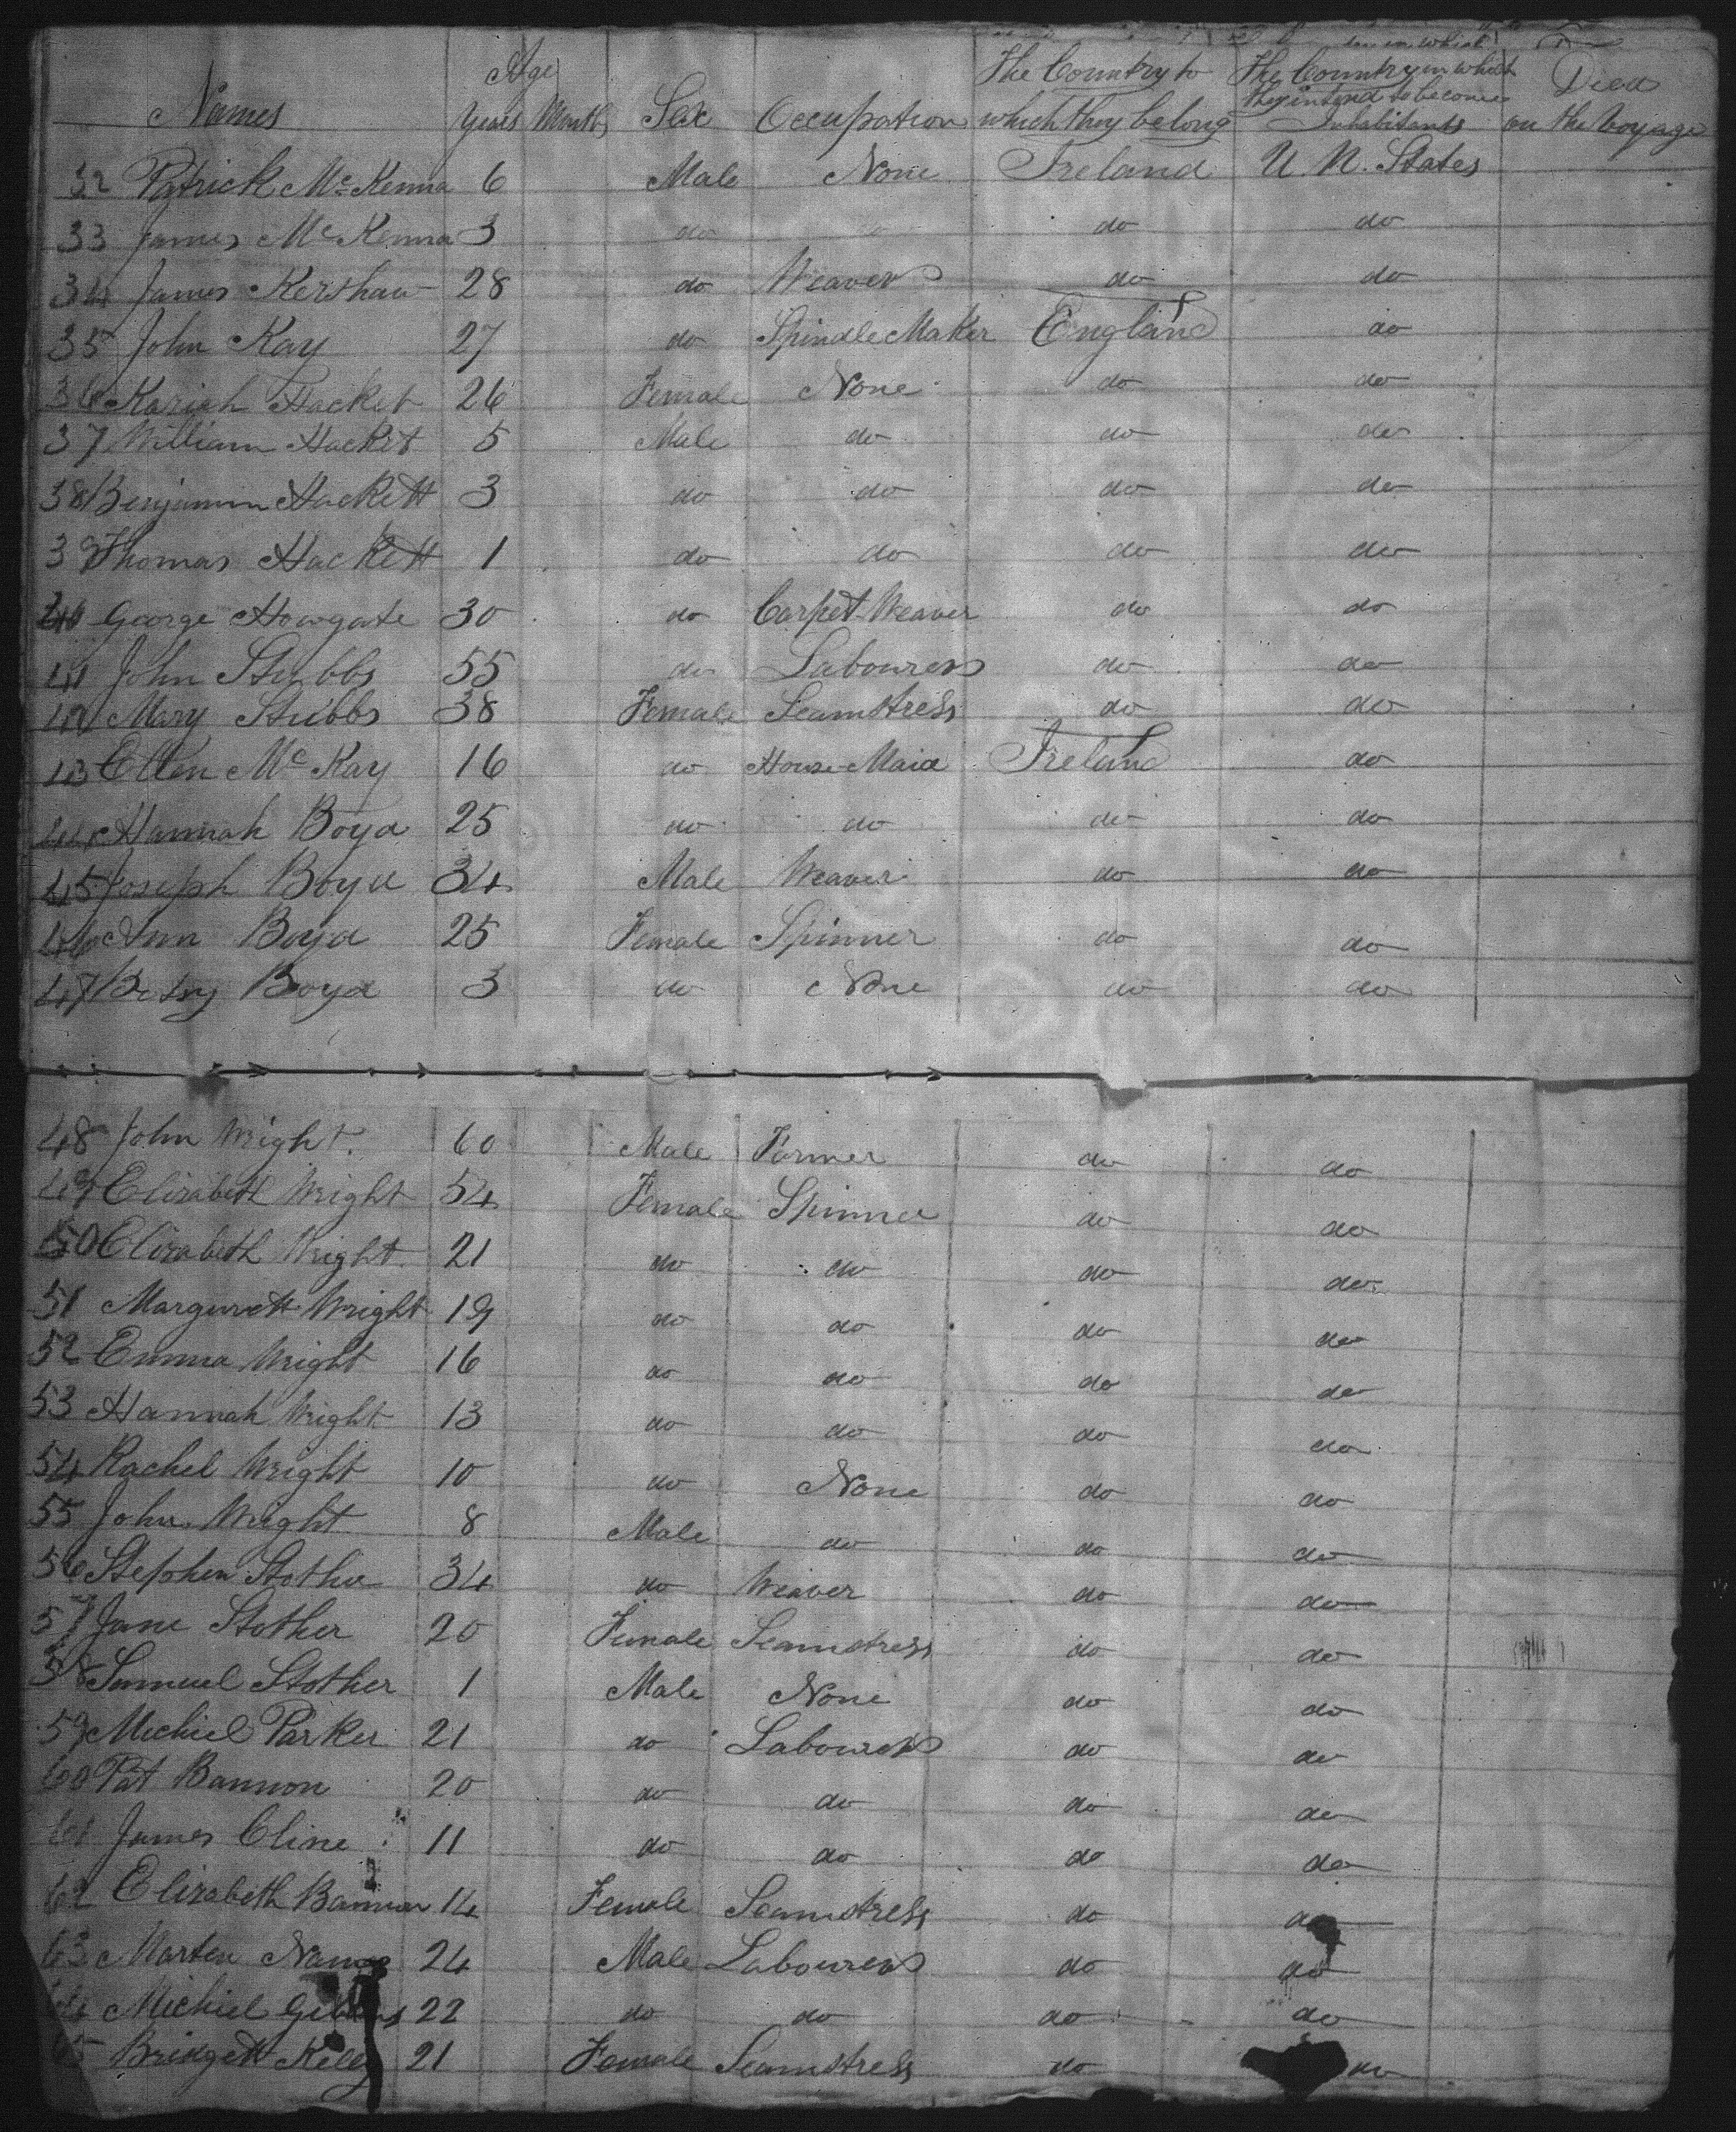 Names Age Years Months Sex Occupation The Country to which they belong The Country in which they intend to become Inhabitants Died on the Voyage
32 Patrick McKenna 6 Male None Ireland U. N. States
33 James McKenna 3 do do do do
34 James Kershaw 28 do Weaver do do
35 John Kay 27 do Spindle Maker England do
36 Kariah Hacket 26 Female None do do
37 William Hacket 5 Male do do do
38 Benjamin Hackett 3 do do do do
39 Thomas Hackett 1 do do do do
40 George Howgate 30 do Carpet Weaver do do
41 John Stubbs 55 do Labourer do do
42 Mary Stubbs 38 Female Seamstress do do
43 Ellen McKay 16 do House Maid Ireland do
44 Hannah Boyd 25 do do do do
45 Joseph Boyd 34 Male Weaver do do
46 Ann Boyd 25 Female Spinner do do
47 Betsy Boyd 3 do None do do
48 John Wright 60 Male Farmer do do
49 Elizabeth Wright 54 Female Spinner do do
50 Elizabeth Wright 21 do do do do
51 Margurett Wright 19 do do do do
52 Emma Wright 16 do do do do
53 Hannah Wright 13 do do do do
54 Rachel Wright 10 do None do do
55 John Wright 8 Male do do do
56 Stephen Stother 34 do Weaver do do
57 Jane Stother 20 Female Seamstress do do
58 Samuel Stother 1 Male None do do
59 Michiel Parker 21 do Labourer do do
60 Pat Bannon 20 do do do do
61 James Cline 11 do do do do
62 Elizabeth Bannon 14 Female Seamstress do do
63 Marten 24 Male Labourer do do
64 Michiel Gibbons 22 do do do do
65 Bridgett Kelly 21 Female Seamstress do do